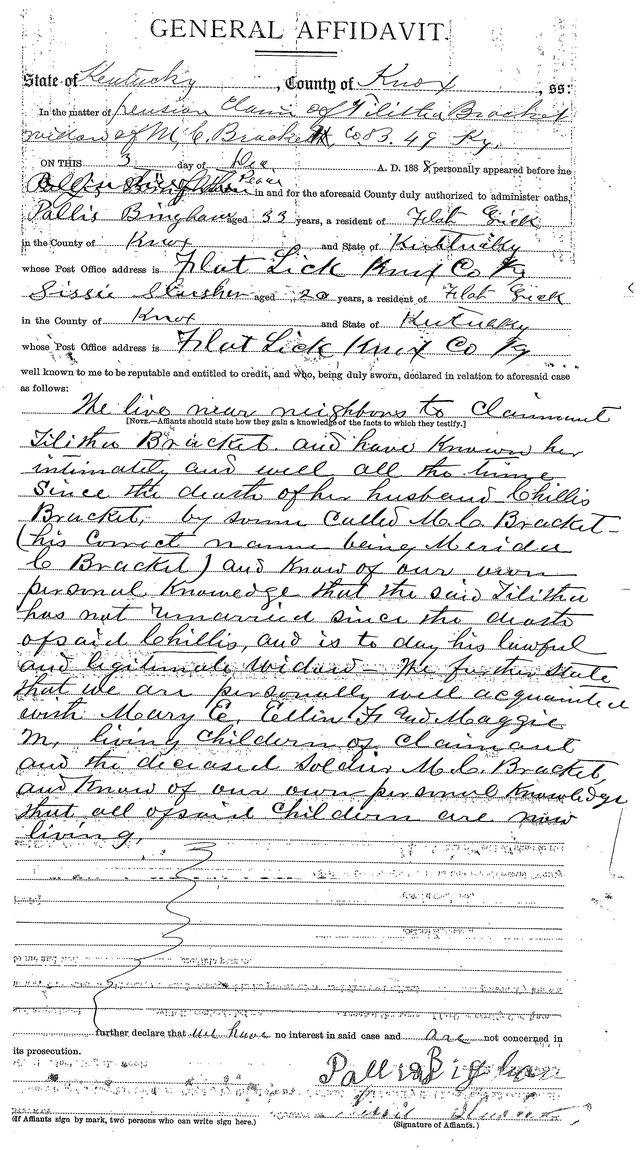 GENERAL AFFIDAVIT.
State of Kentucky, County of Knox, ss:
In the matter of pension Claim of Tilitha Bracket
widow of M. C. Brackett, Co B. 49 Ky.
ON THIS 3 day of Dec A. D. 1888, personally appeared before me
in and for the aforesaid County duly authorized to administer oaths,
Pallis Bingham aged 33 years, a resident of Flat Lick
in the County of Knox and State of Kentucky
whose Post Office address is Flat Lick Knox Co Ky
Sissie Slusher aged 20 years, a resident of Flat Lick
in the County of Knox and State of Kentucky
whose Post Office address is Flat Lick Knox Co Ky
well known to me to be reputable and entitled to credit, and who, being duly sworn, declared in relation to aforesaid case
as follows:
We live near neighbors to Claimant
[NOTE.—Affiants should state how they gain a knowledge of the facts to which they testify.]
Tilitha Bracket. and have Known her
intimately and well all the time
Since the death of her husband Chillis
Bracket, by some Called M. C. Bracket-
(his Correct name being Merida
C Bracket) and Know of our own
personal Knowledge that the said Tilitha
has not remarried since the death
of said Chillis, and is to day his lawful
and legitimate Widow - We further State
that we are personally well acquainted
with Mary E. Ellin F. and Maggie
M, living Childern of Claimant
and the deceased Soldier M. C. Bracket,
and Know of our own personal Knowledge
that all of said Childern are now
living,
further declare that we have no interest in said case and are not concerned in
its prosecution.
Pallis Bigham
(If Affiants sign by mark, two persons who can write sign here.) (Signature of Affiants.)